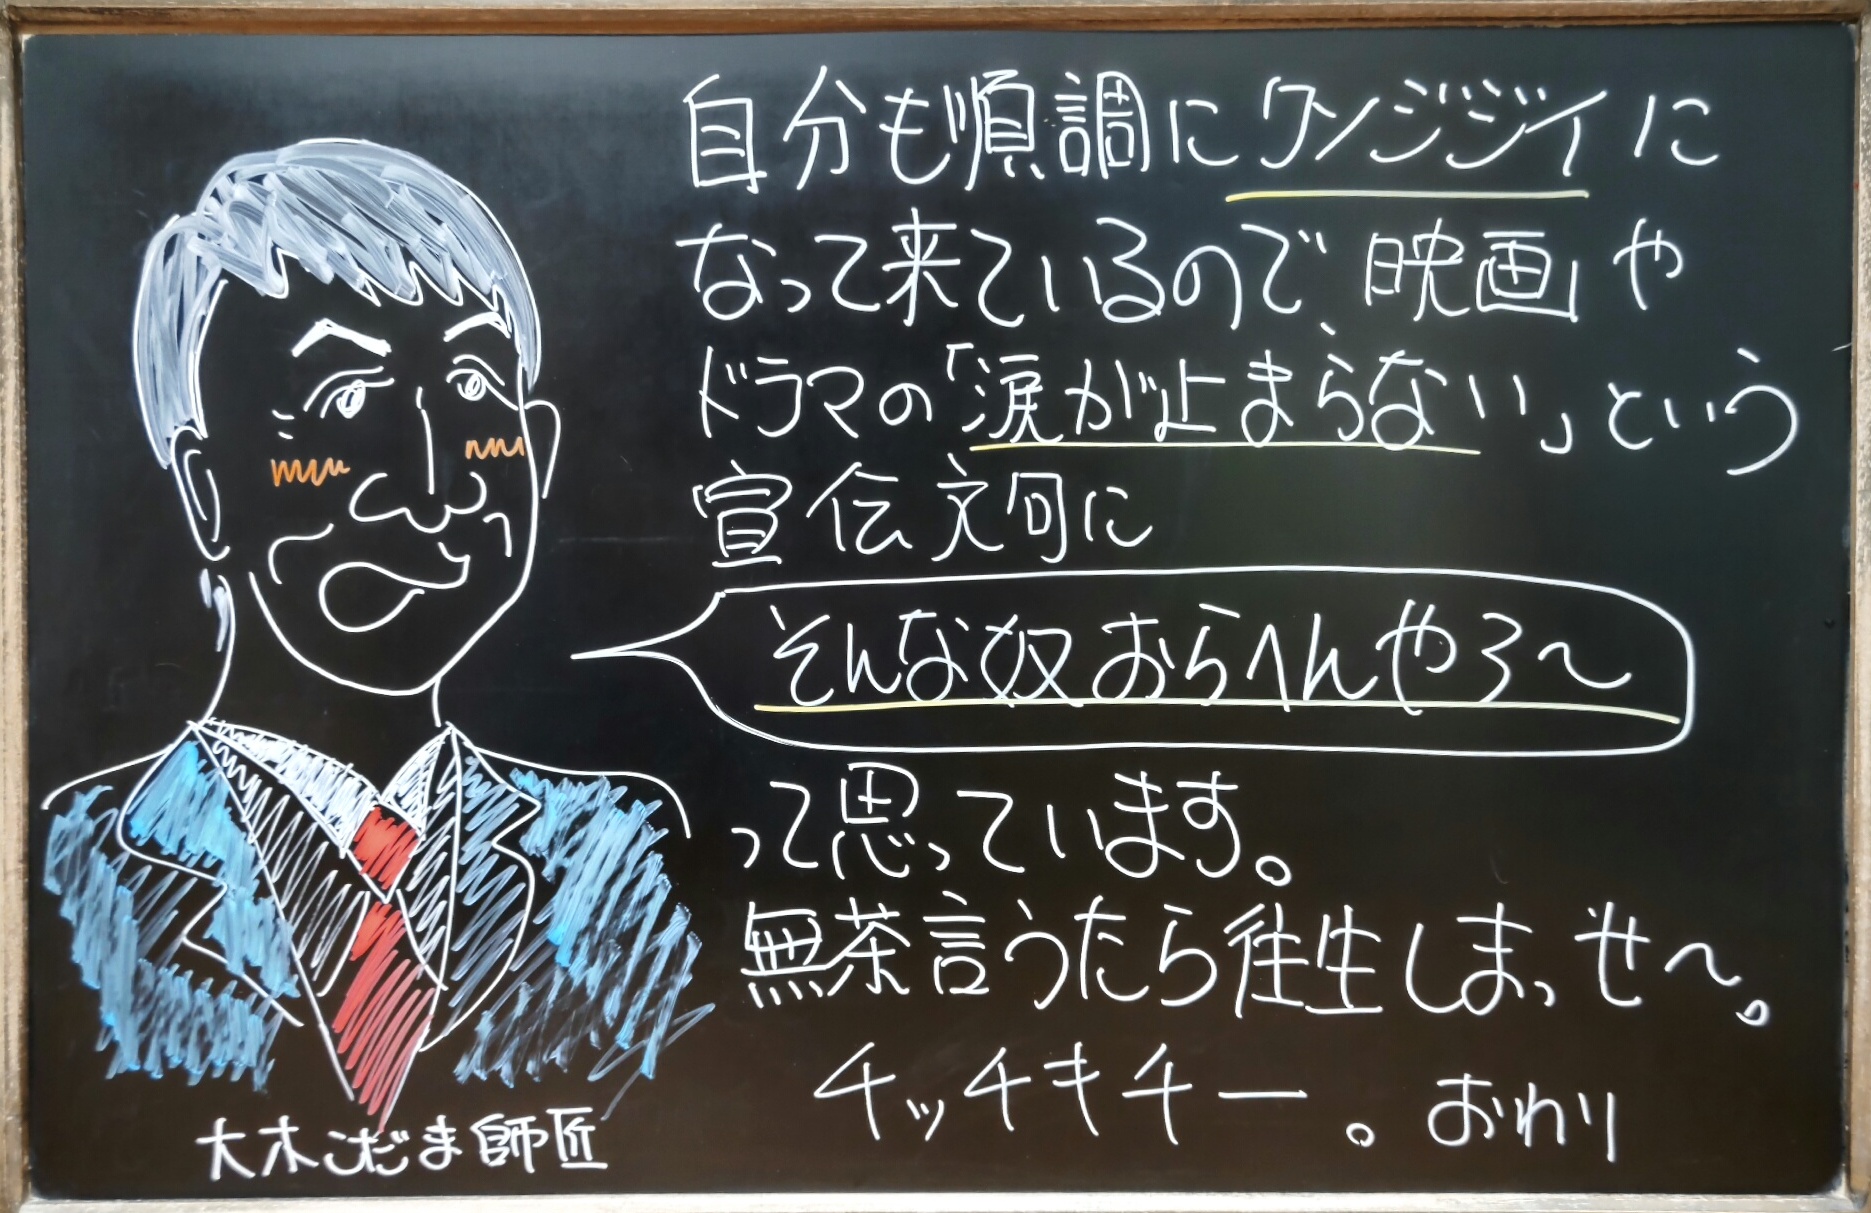 自分も順調にクソジジイに
なって来ているので、映画や
ドラマの「涙が止まらない」という
宣伝文句に
そんな奴おらへんやろ〜
って思っています。
無茶言うたら往生しまっせ〜。
チッチキチー。おわり
大木こだま師匠